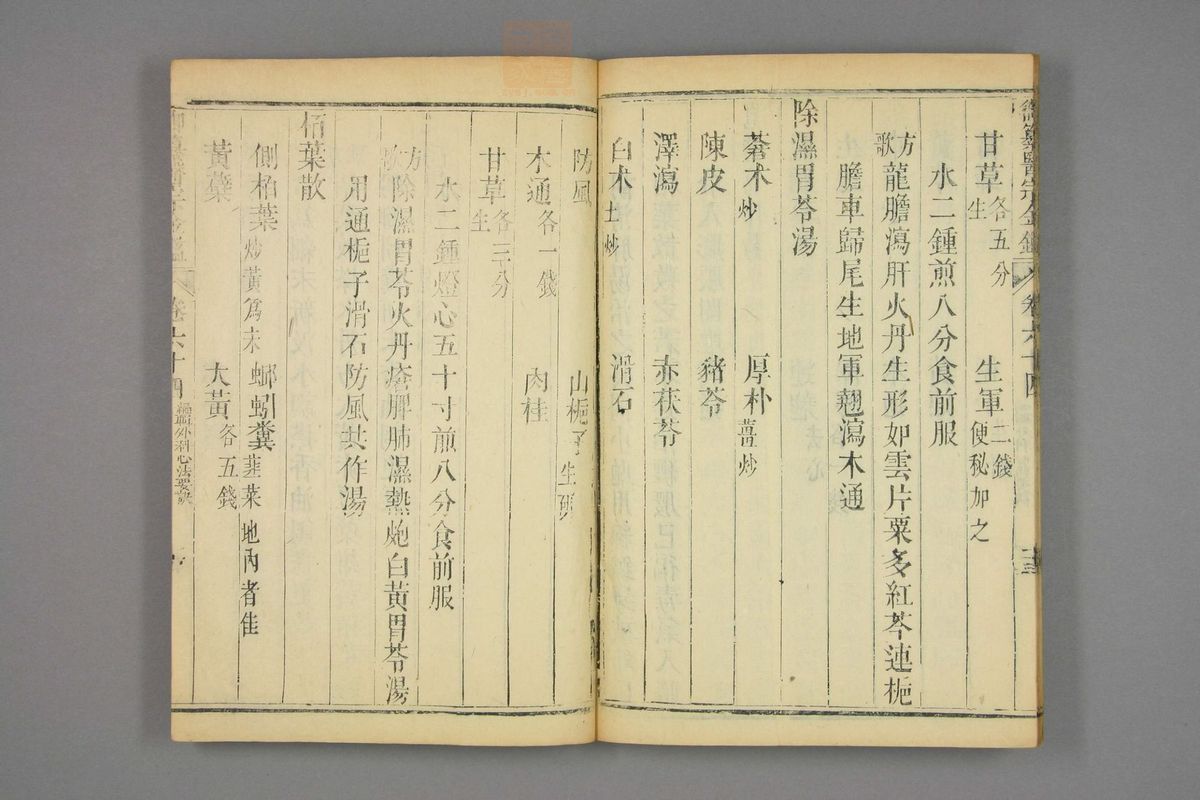 御纂醫宗金鑑 卷六十四
甘草生 各五分 生軍二錢 便秘加之
水二鍾煎八分食前服
方歌 龍膽瀉肝火丹生形如雲片粟多紅芩連梔
膽車歸尾生地軍翹瀉木通
除濕胃苓湯
蒼朮炒 厚朴薑炒
陳皮 豬苓
澤瀉 赤茯苓
白朮土炒 滑石
防風 山梔子生研
木通各一錢 肉桂
甘草生 各三分
水二鍾燈心五十寸煎八分食前服
方歌 除濕胃苓火丹瘡脾肺濕熱皰白黃胃苓湯
用通梔子滑石防風共作湯
栢葉散
側柏葉炒黃為末 蚯蚓糞韮菜地內者佳
黃蘗 大黃各五錢
卷六十四 編輯外科心法要訣